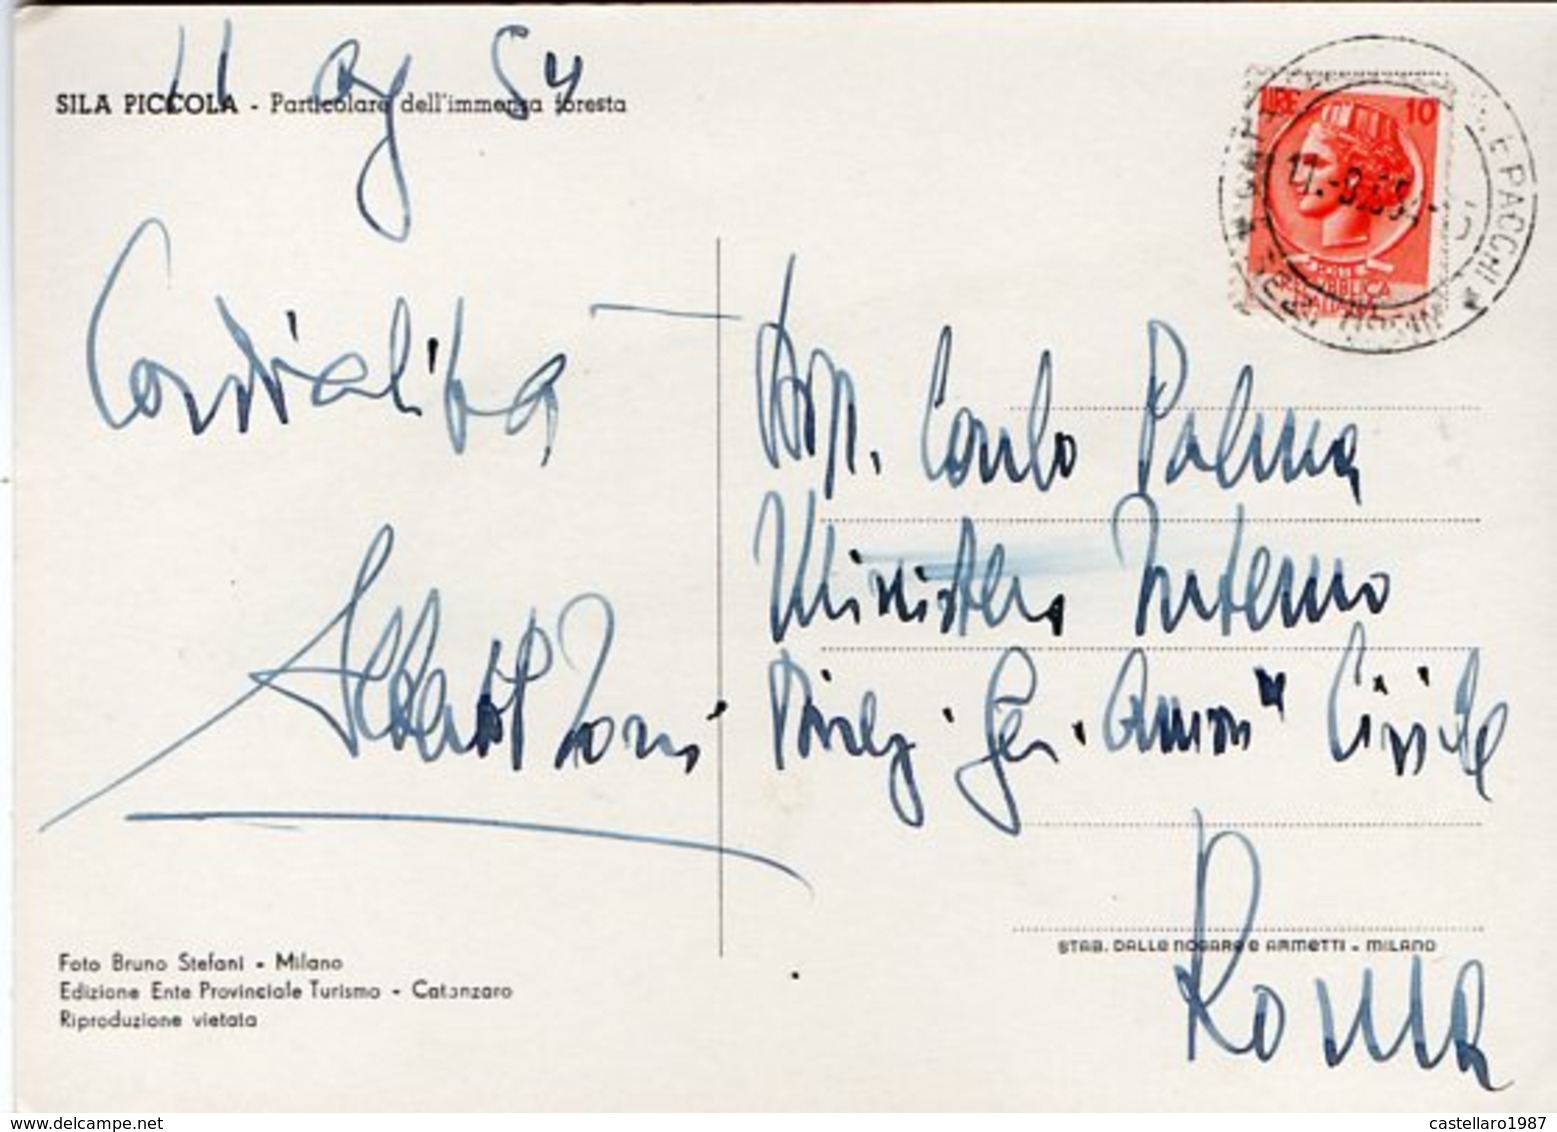 11 ag 54
SILA PICCOLA - Particolare dell'immensa foresta
LIRE 10
E PACCHI
Cordialità
Carlo Palma
Ministero Interno
Direz. Gen. Ammi" Civile
Roma
Foto Bruno Stefani - Milano
Edizione Ente Provinciale Turismo - Catanzaro
Riproduzione vietata
STAB. DALLE NOGARE E ARMETTI - MILANO
www.delcampe.net
castellaro1987